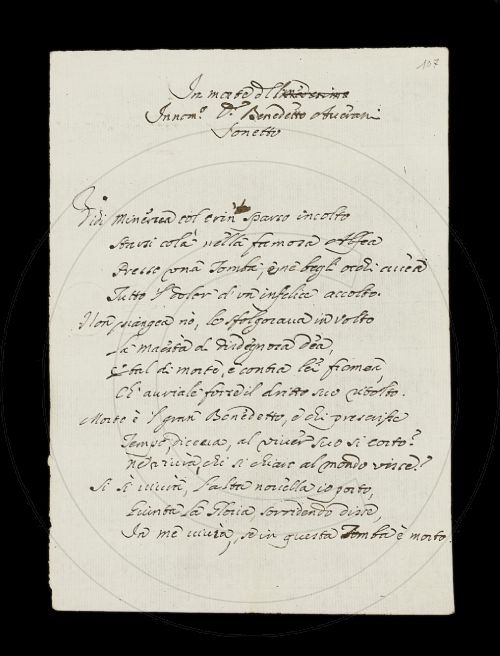 107
In morte dell
In nom.e D.r Benedetto Averani
Sonetto
Vidi Minerva col crin sparso incolto
Starsi colà nella famosa Alfea
Presso una Tomba, e ne begl' occhi avea
Tutto 'l dolor d' un infelice accolto.
Non piangea nò, le sfolgorava in volto
La maestà di disdegnosa Dea,
E tal di morte, e contra lei fremea,
Ch' avriale forse il dritto suo tolto.
Morto è 'l gran Benedetto, e chi prescrisse
Tempo, diceva, al viver suo sì corto?
Nè vivrà, chi sì chiaro al mondo visse?
Sì sì vivrà, l'alta novella io porto,
Giunta la Gloria, sorridendo disse,
In me vivrà, se in questa Tomba è morto.